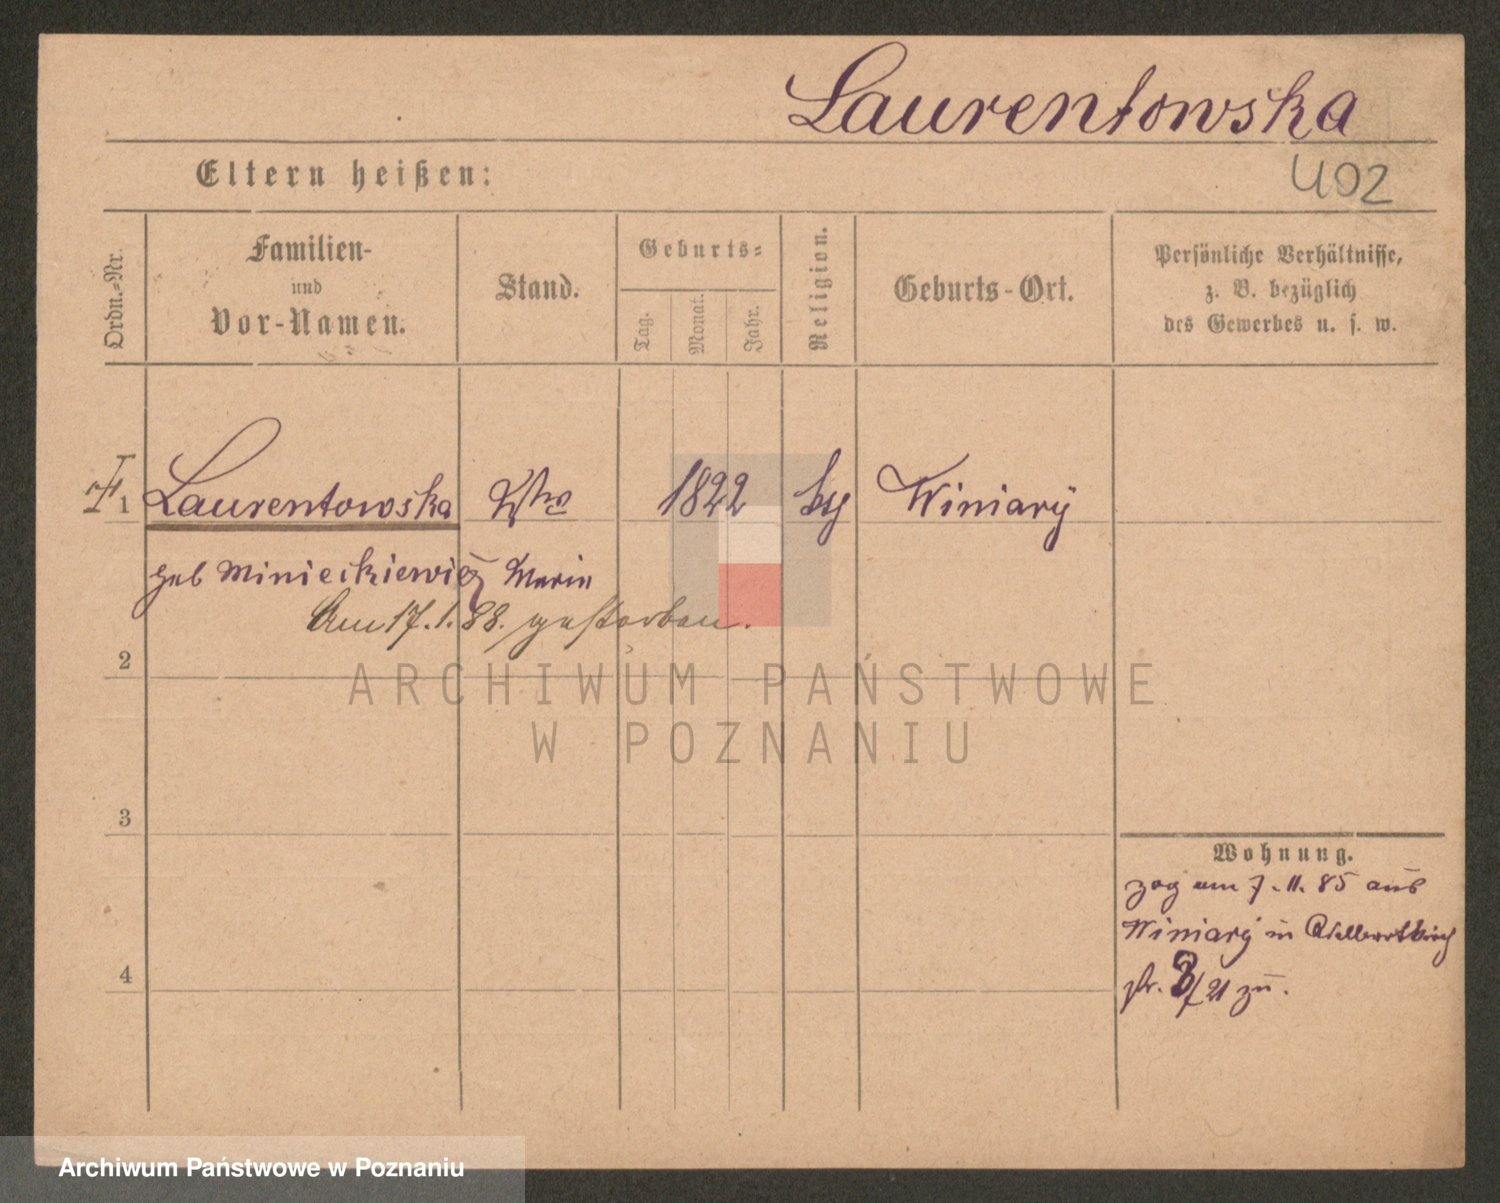 Laurentowska
402
Eltern heißen:
Ordn.-Nr.
Familien-
und
Vor-Namen.
Stand.
Geburts-
Tag.
Monat.
Jahr.
Religion.
Geburts-Ort.
Persönliche Verhältnisse,
z. B. bezüglich
des Gewerbes u. s. w.
1 Laurentowska Wwe 1822 Winiary
geb Minieckiewicz Maria
Am 17.1.88. gestorben.
2
3
4
Wohnung.
zog am 7.11.85 aus
Winiary in Adelbertkirch
str. 3/21 zu.
ARCHIWUM PAŃSTWOWE
W POZNANIU
Archiwum Państwowe w Poznaniu